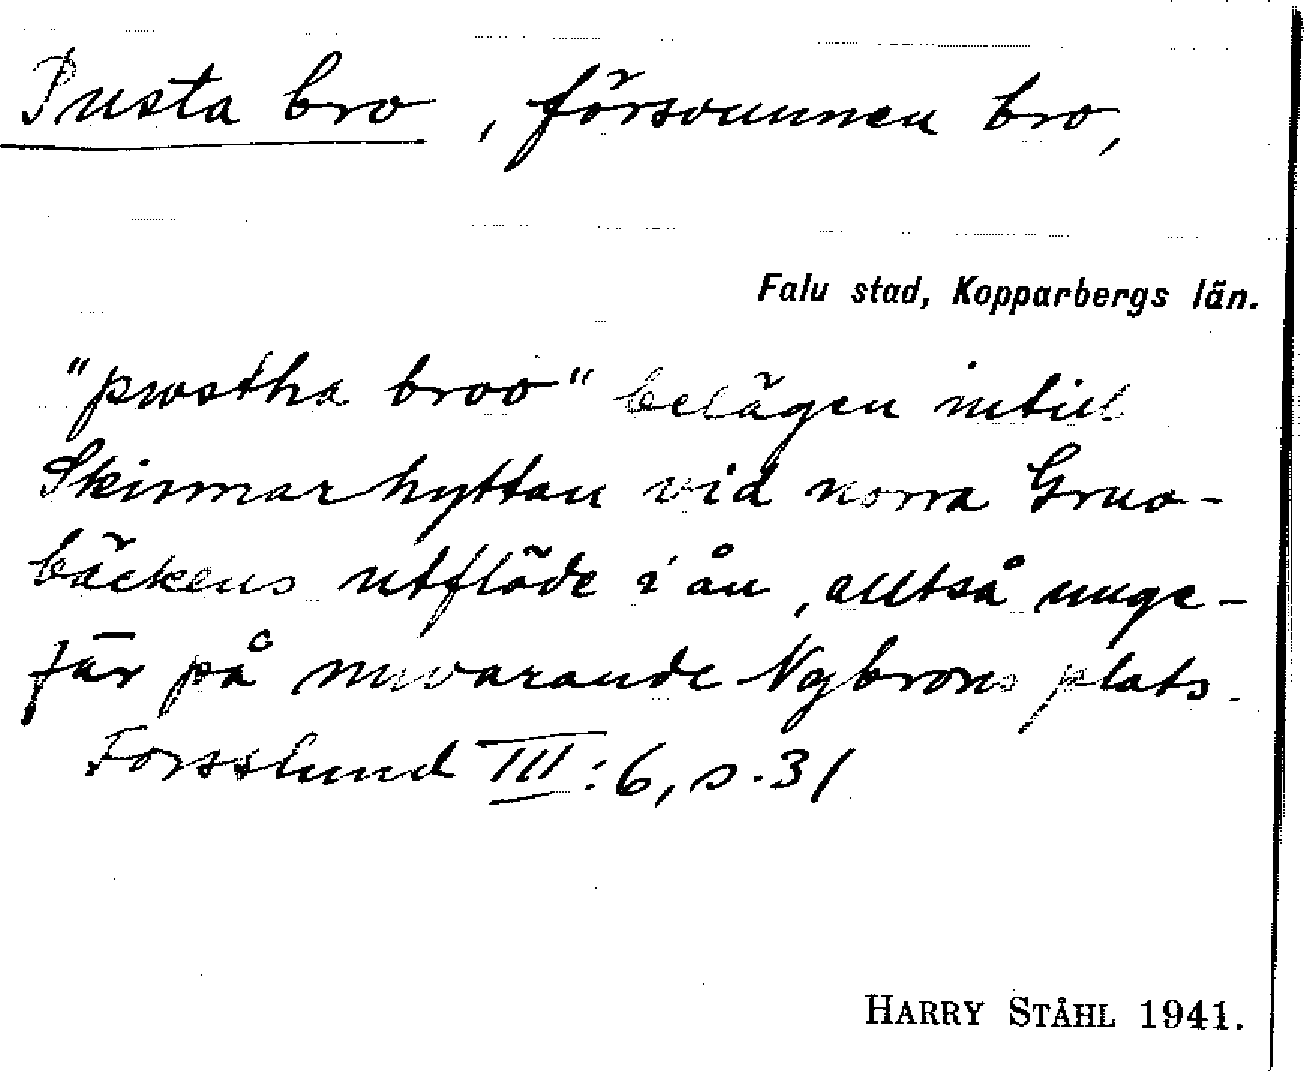 Pusta bro, försvunnen bro,
Falu stad, Kopparbergs län.
"pwstha broo" belägen intill
Skinnarhyttan vid norra Gruv-
bäckens utflöde i ån, alltså unge-
fär på nuvarande Nybrons plats.
Forsslund III:6, s.31
HARRY STÅHL 1941.